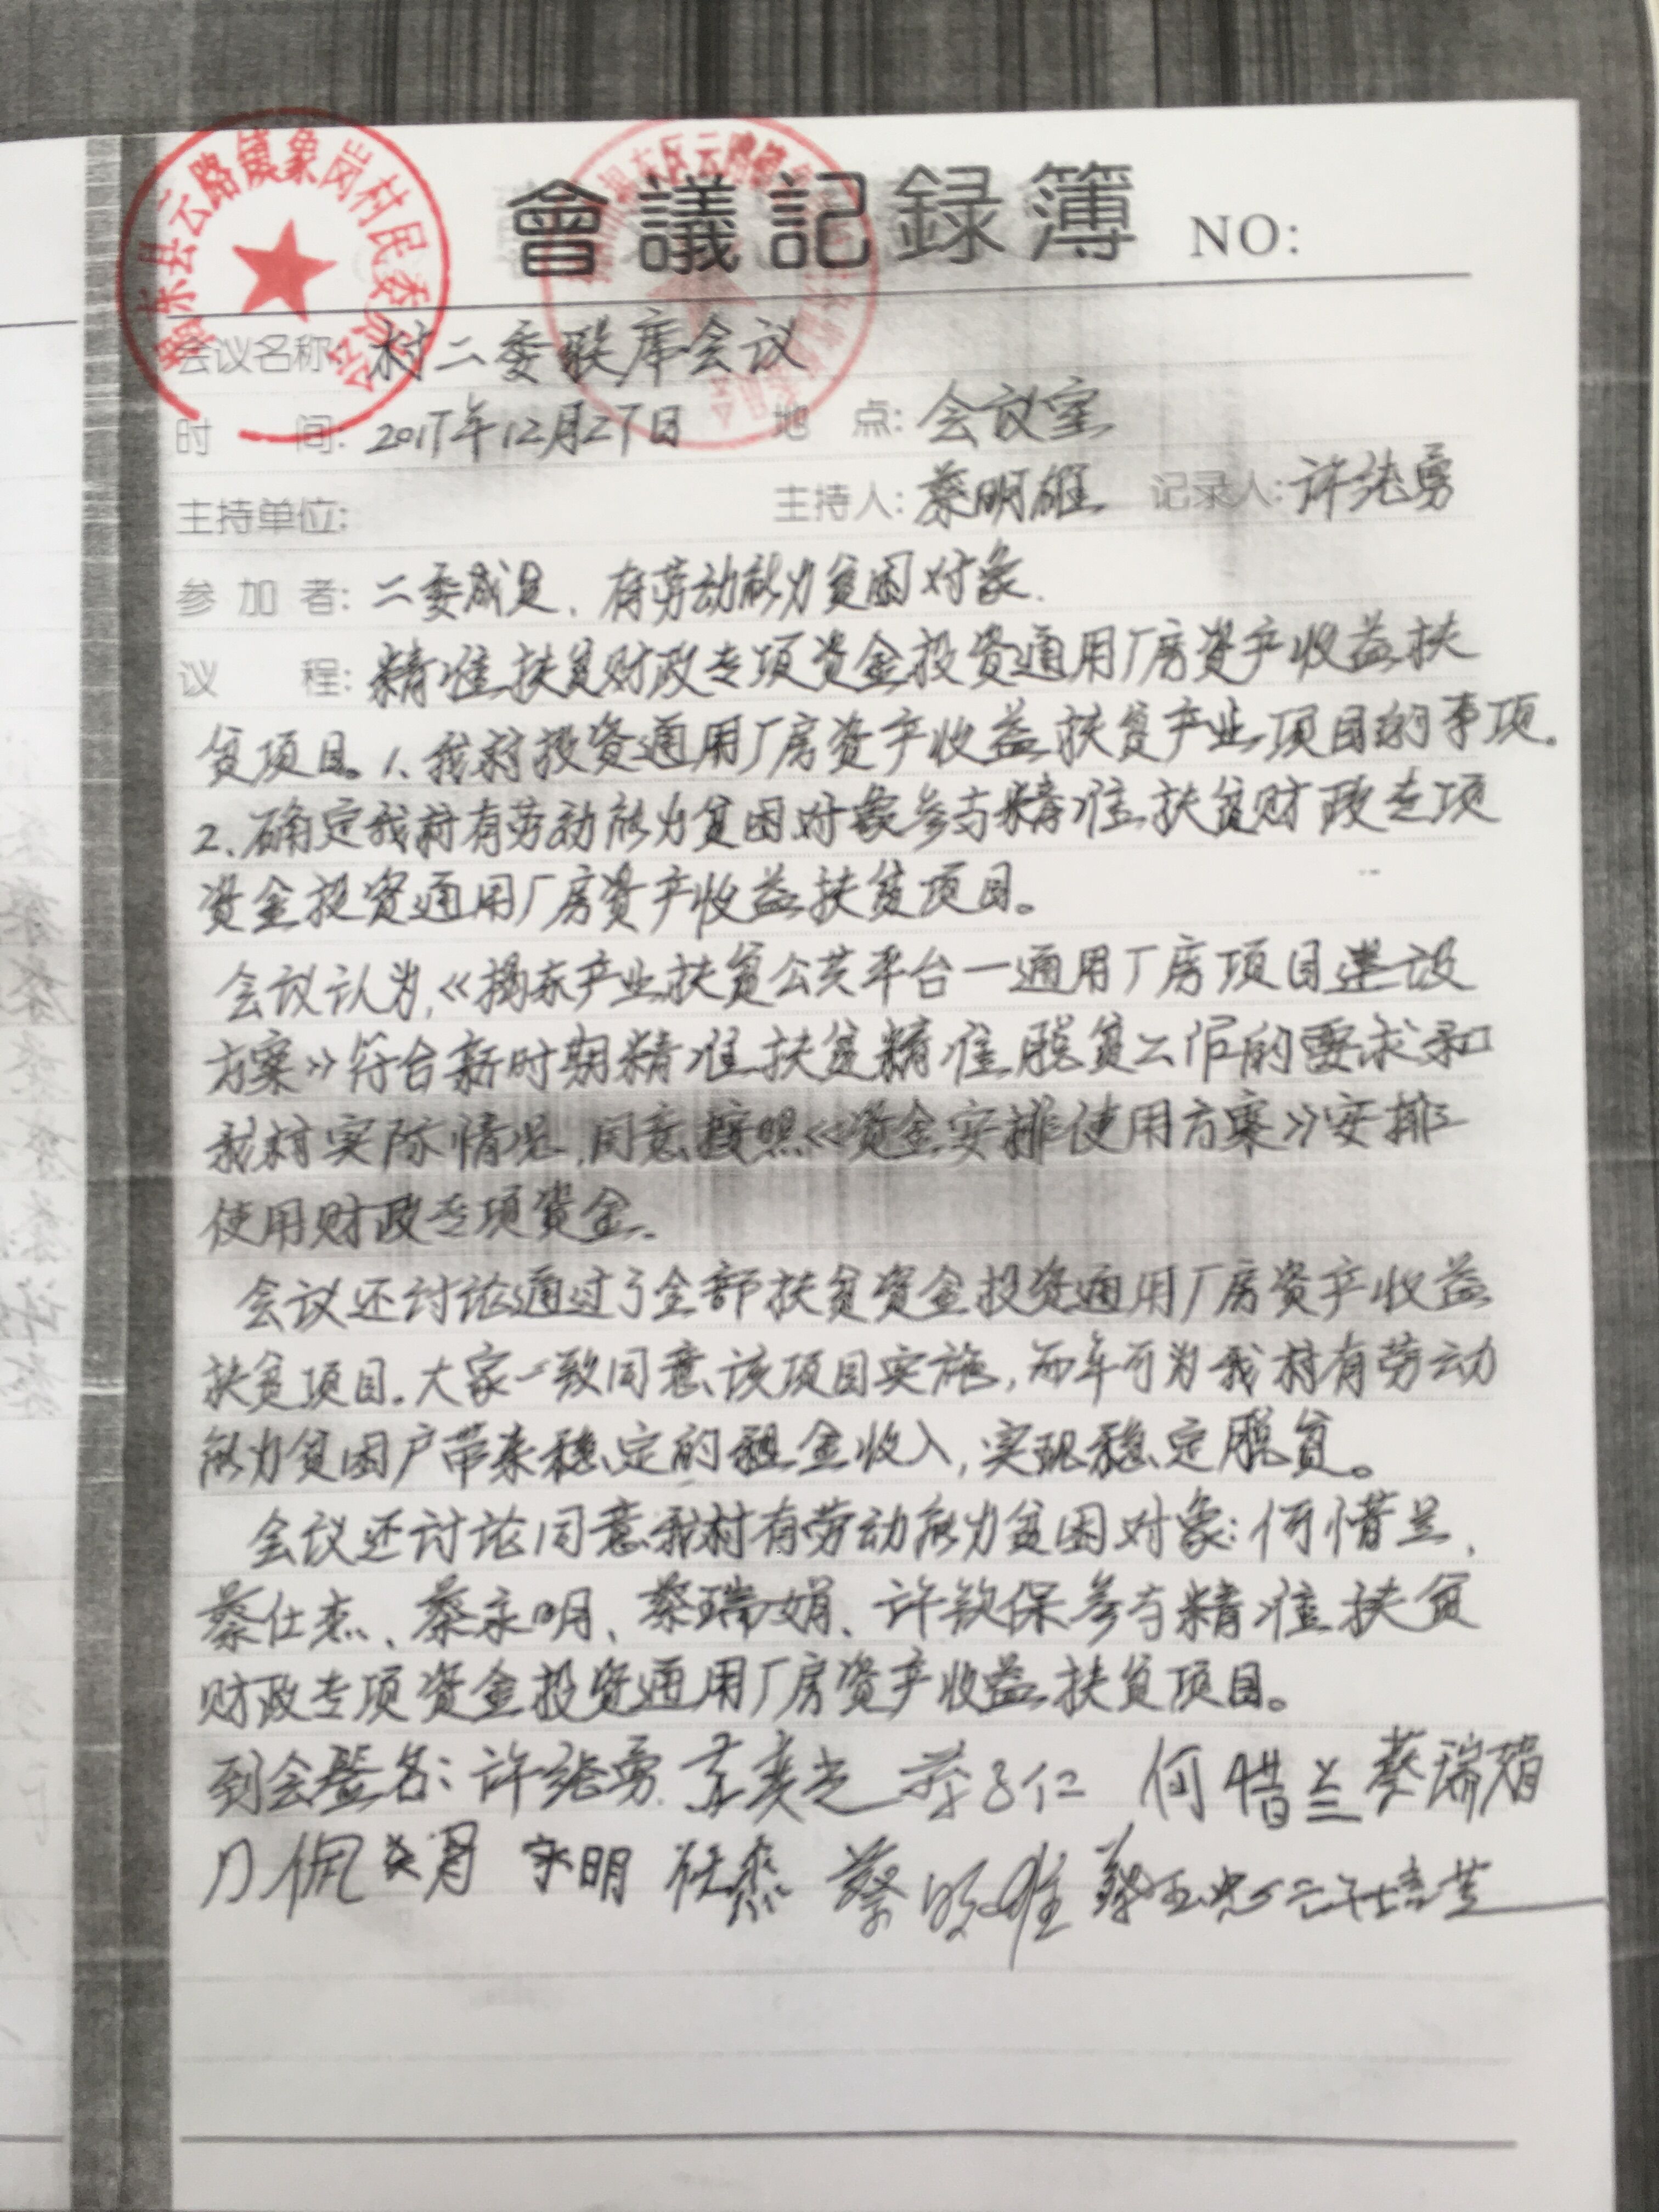 會議記録簿 NO:
揭东县云路镇象岗村民委员会
会议名称: 村二委联席会议
时 间: 2017年12月27日 地 点: 会议室
主持单位: 主持人: 蔡明雄 记录人: 许绕勇
参 加 者: 二委成员、有劳动能力贫困对象.
议 程: 精准扶贫财政专项资金投资通用厂房资产收益扶
贫项目。1、我村投资通用厂房资产收益扶贫产业项目的事项。
2、确定我村有劳动能力贫困对象参与精准扶贫财政专项
资金投资通用厂房资产收益扶贫项目。
会议认为,《揭东产业扶贫公共平台一通用厂房项目建设
方案》符合新时期精准扶贫精准脱贫工作的要求和
我村实际情况,同意按照《资金安排使用方案》安排
使用财政专项资金.
会议还讨论通过了全部扶贫资金投资通用厂房资产收益
扶贫项目。大家一致同意该项目实施,而年可为我村有劳动
能力贫困户带来稳定的租金收入,实现稳定脱贫。
会议还讨论同意我村有劳动能力贫困对象:何惜兰、
蔡仕杰、蔡永明、蔡瑞娟、许钦保参与精准扶贫
财政专项资金投资通用厂房资产收益扶贫项目。
到会签名: 何惜兰 蔡瑞娟
永明 仕杰 蔡明雄